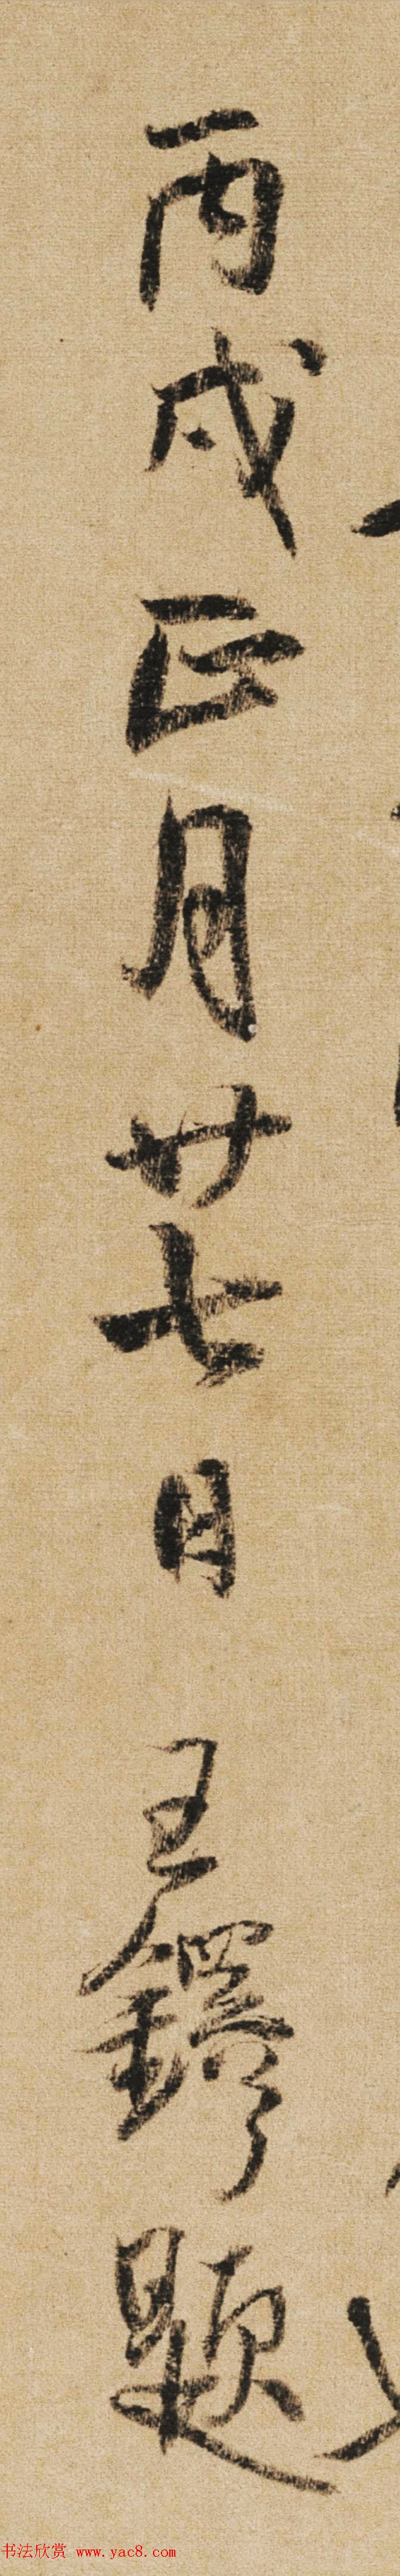 丙戌正月廿七日 王鐸題
书法欣赏 www.yac8.com